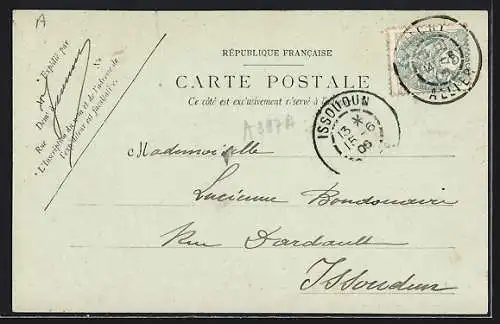 A
RÉPUBLIQUE FRANÇAISE
CARTE POSTALE
Ce côté est exclusivement réservé à
Expédié par
Demt
Rue No
L'Inscription du nom et de l'adresse de
l'expéditeur est facultative
ALLIER
ISSOUDUN
13 *
15 -6
Mademoiselle
Lucienne Bondonnaire
Rue Dardault
Issoudun